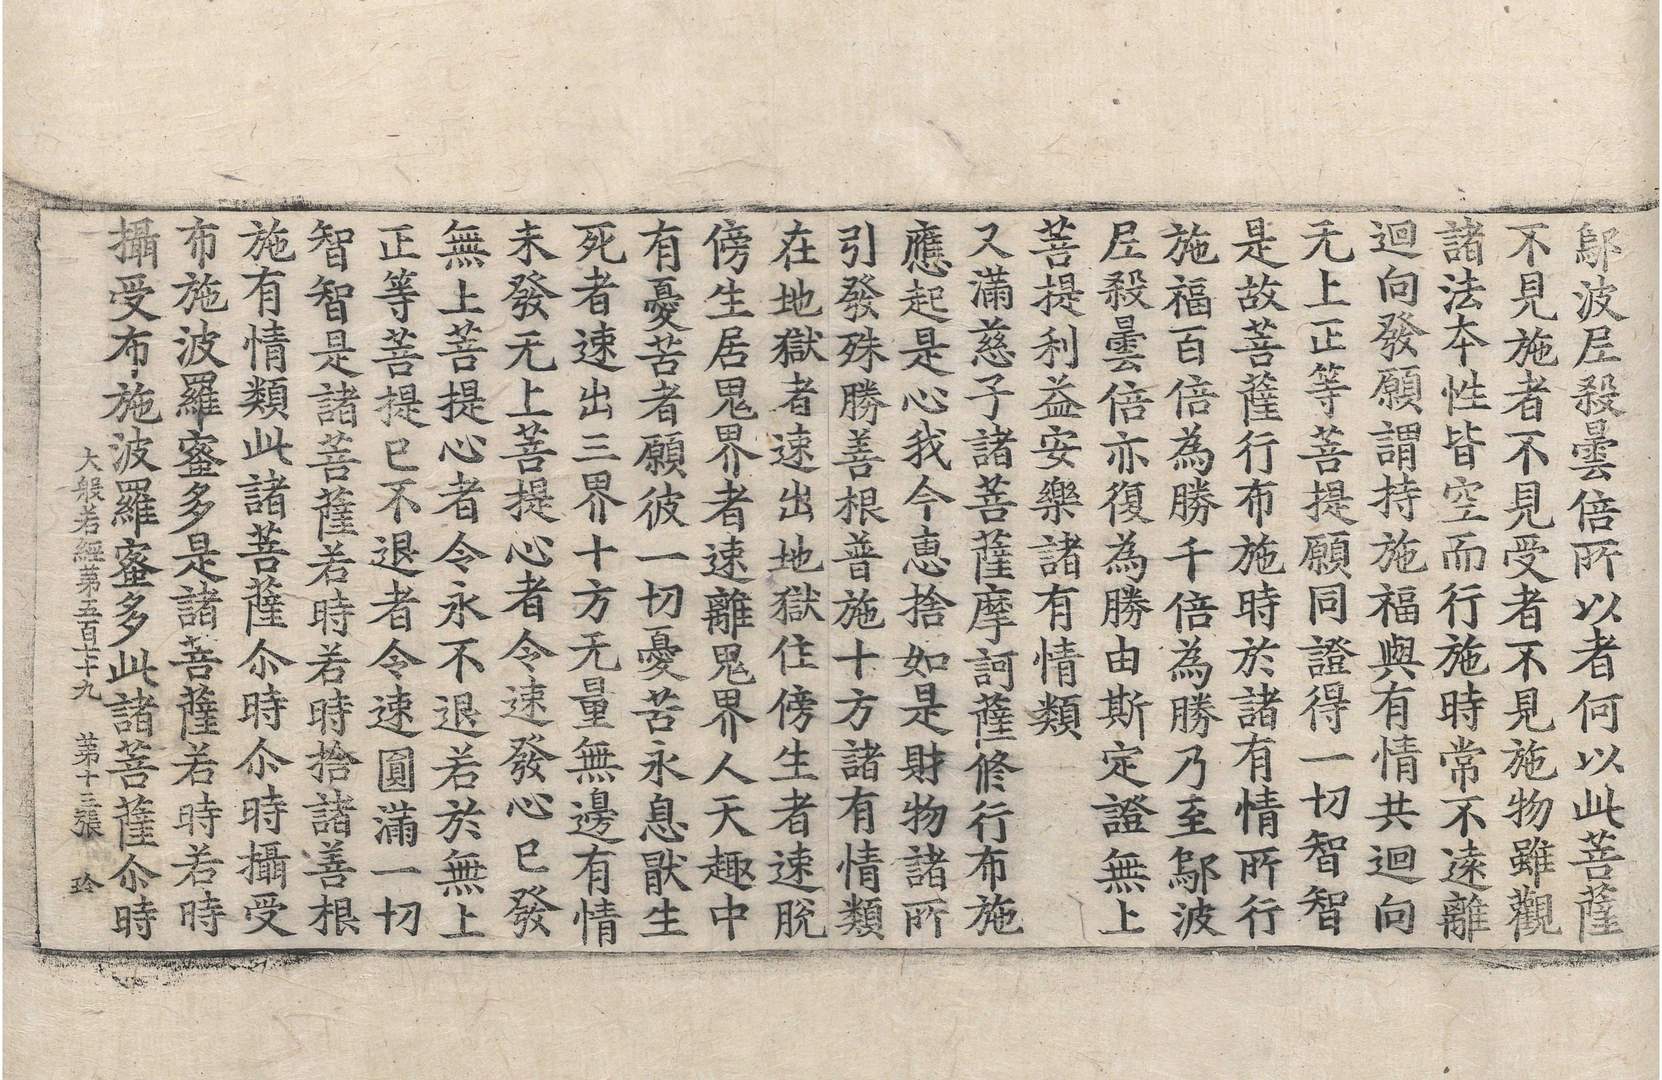 鄔波尼殺曇倍所以者何以此菩薩
不見施者不見受者不見施物雖觀
諸法本性皆空而行施時常不遠離
迴向發願謂持施福與有情共迴向
无上正等菩提願同證得一切智智
是故菩薩行布施時於諸有情所行
施福百倍為勝千倍為勝乃至鄔波
尼殺曇倍亦復為勝由斯定證無上
菩提利益安樂諸有情類
又滿慈子諸菩薩摩訶薩修行布施
應起是心我今惠捨如是財物諸所
引發殊勝善根普施十方諸有情類
在地獄者速出地獄住傍生者速脫
傍生居鬼界者速離鬼界人天趣中
有憂苦者願彼一切憂苦永息猒生
死者速出三界十方无量無邊有情
未發无上菩提心者令速發心已發
無上菩提心者令永不退若於無上
正等菩提已不退者令速圓滿一切
智智是諸菩薩若時若時捨諸善根
施有情類此諸菩薩尒時尒時攝受
布施波羅蜜多是諸菩薩若時若時
攝受布施波羅蜜多此諸菩薩尒時
大般若經苐五百七十九 苐十三張 玲